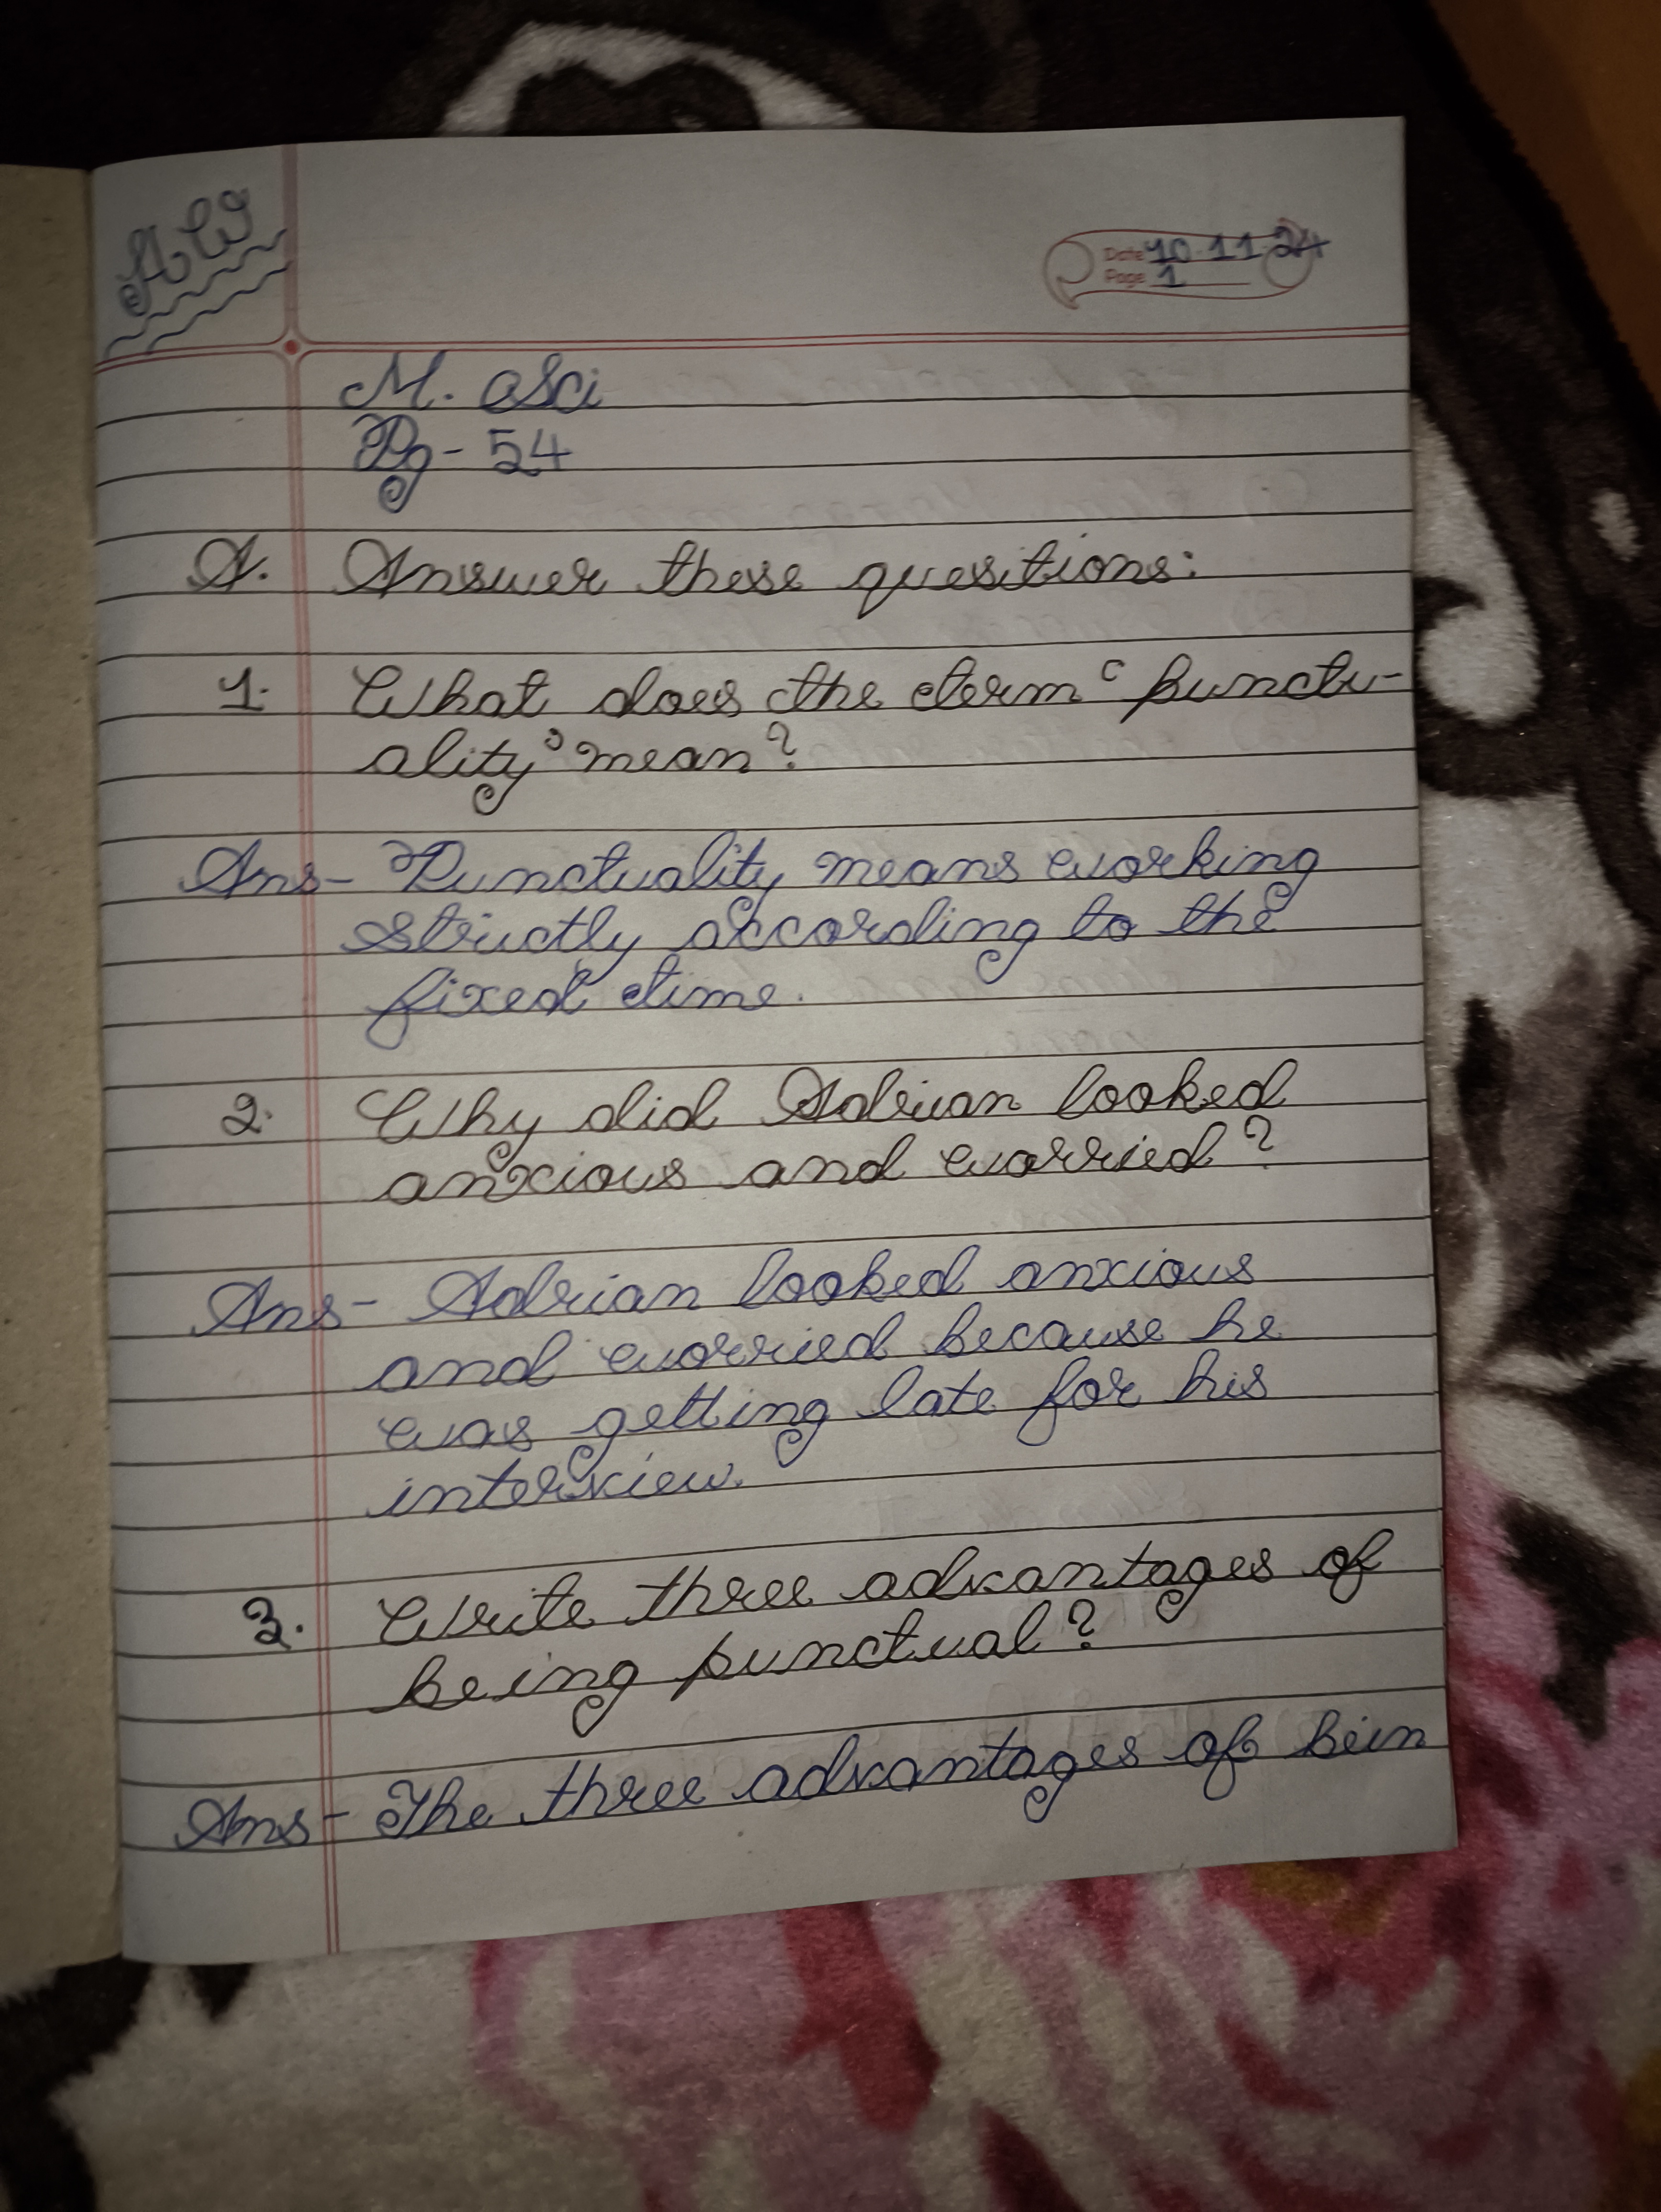 AW
Date 10.11.24
Page 1
M. Sci
Pg - 54
A. Answer these questions:
1. What does the term ‘punctu-
ality’ mean?
Ans- Punctuality means working
strictly according to the
fixed time.
2. Why did Adrian looked
anxious and worried?
Ans- Adrian looked anxious
and worried because he
was getting late for his
interview.
3. Write three advantages of
being punctual?
Ans- The three advantages of bein